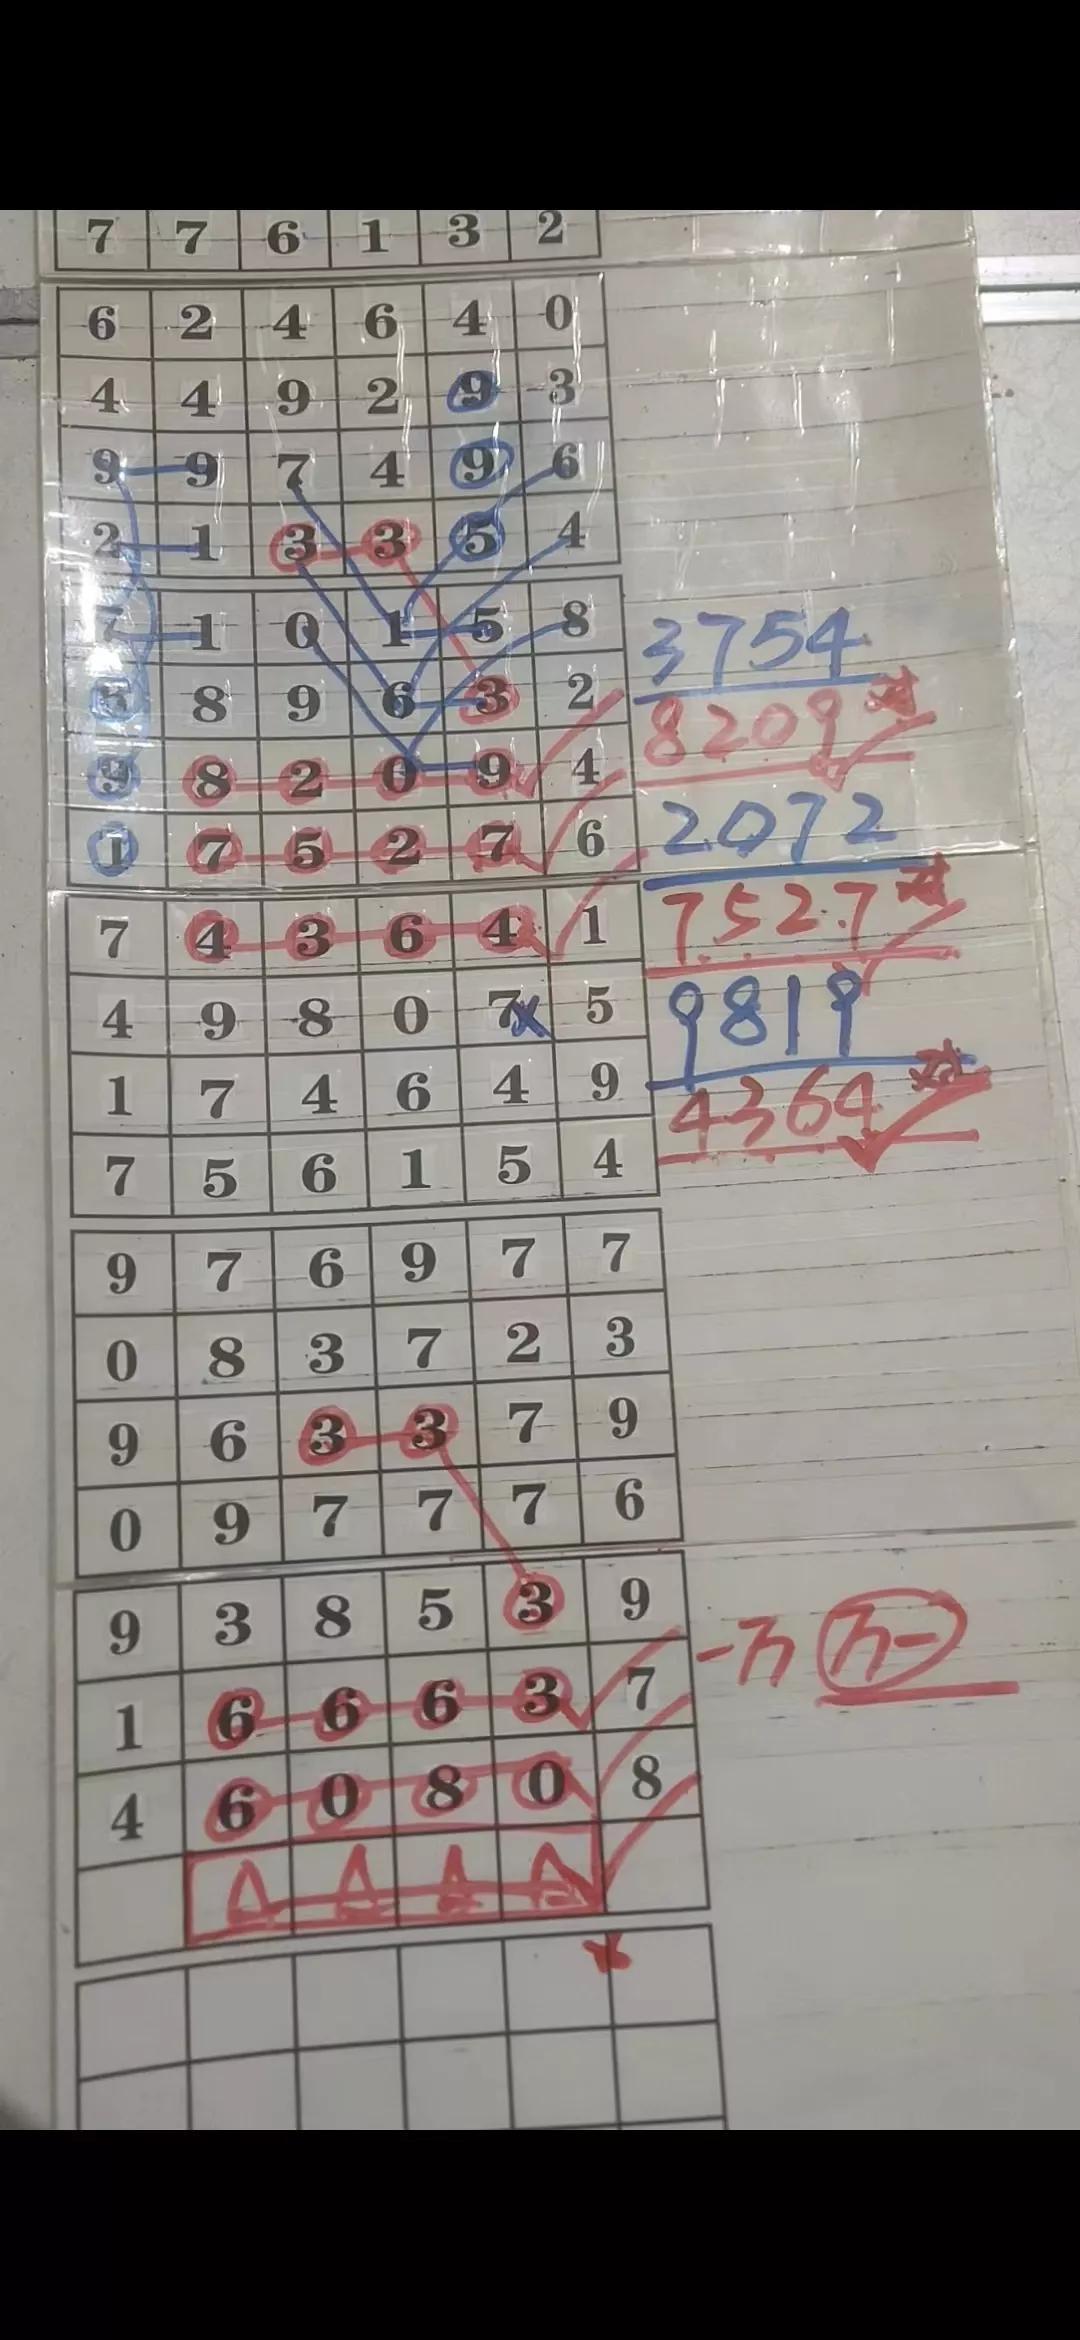 7 7 6 1 3 2
6 2 4 6 4 0
4 4 9 2 9 3
9 9 7 4 9 6
2 1 3 3 5 4
7 1 0 1 5 8
8 9 6 3 2
3754
9 8 2 0 9 4
8209 对
1 7 5 2 7 6
2072
7 4 3 6 4 1
7527 对
4 9 8 0 7 5
9819
1 7 4 6 4 9
4364 对
7 5 6 1 5 4
9 7 6 9 7 7
0 8 3 7 2 3
9 6 3 3 7 9
0 9 7 7 7 6
9 3 8 5 3 9
一万 万一
1 6 6 6 3 7
4 6 0 8 0 8